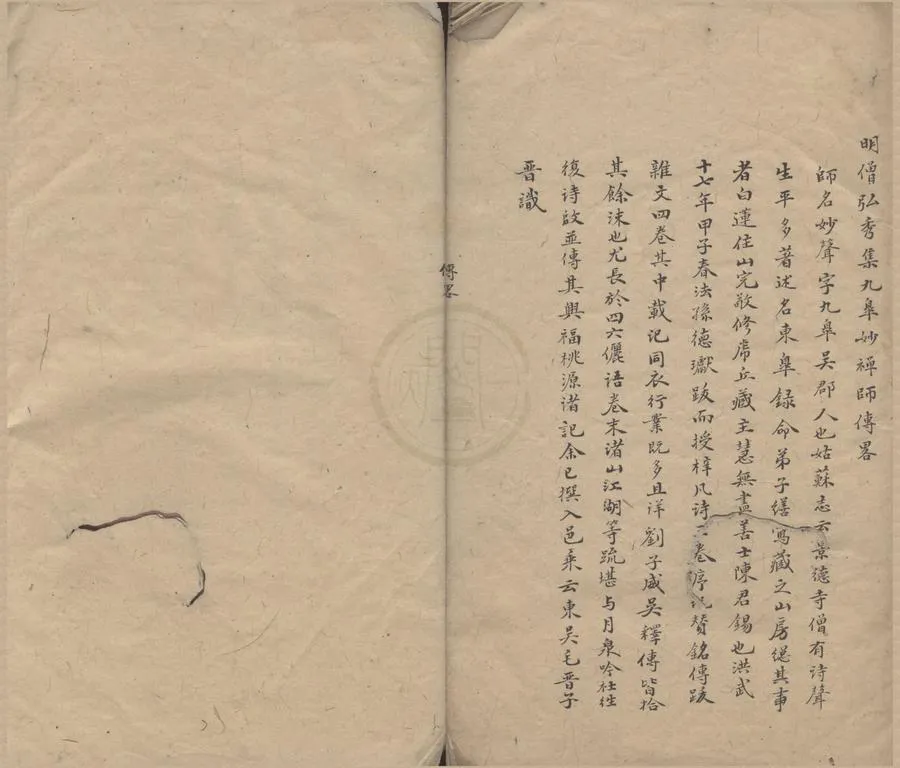 明僧弘秀集九臯妙禪師傳畧
師名妙聲字九臯吳郡人也姑蘇志云景德寺僧有詩聲
生平多著述名東臯録命弟子繕寫藏之山房總其事
者白蓮住山完敬修虎丘藏主慧無盡善士陳君錫也洪武
十七年甲子春法孫德瓛跋而授梓凡詩三卷序記賛銘傳跋
雜文四卷其中載記同衣行業既多且詳劉子威吳釋傳皆拾
其餘沫也尤長於四六儷語卷末諸山江湖等疏堪与月泉吟社往
復詩啟並傳其興福桃源諸記余已撰入邑乘云東吳毛晋子
晋識
傳畧